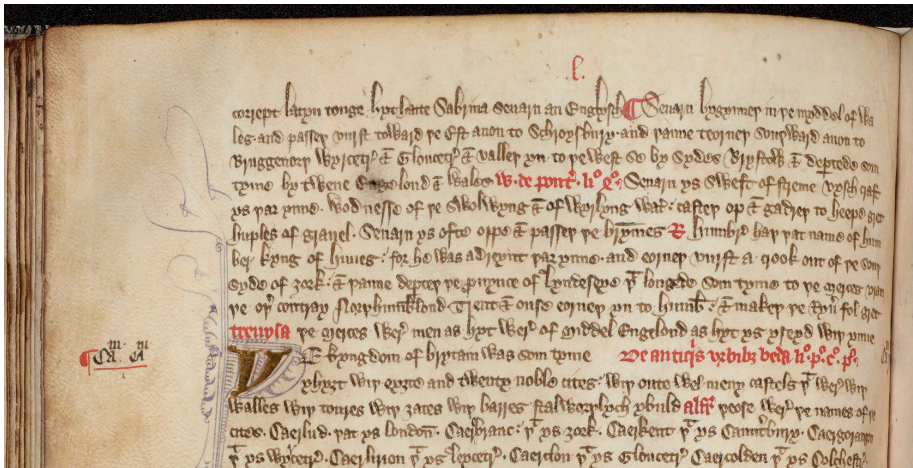 l.
corrept latyn tonge hyt hatte Sabrina seuarn an Englysch ¶ Seuarn bygynneþ in þe myddel of wa
les · and passeþ vurst toward þe Est anon to Schroysbury · and þanne teorneþ souþward anon to
Bruggenorþ Wyrcetr̄ & Gloucetr̄ & valleþ yn to þe west se by sydes Brystow & departede som
tyme bytwene Engelond & wales W · de pont̄ · li° 4° · Seuarn ys sweft of streme vysch craf
ys þar ynne · wodnesse of þe swolwyng & of worlyng wat̄ · casteþ op & gadreþ to heepe gret
huples of grauel · Seuarn ys ofte oppe & passeþ þe brymmes R Humbr̄ haþ þat name of hum
ber kyng of hunes · for he was adreynt þar ynne · and eorneþ vurst a crook out of þe souþ
syde of ȝork · & þanne departeþ þe prouynce of lyndeseye þᵗ longede som tyme to þe merces vram
þe oþ̄ contray Norþhumblond · Trent & ouse eorneþ yn to humb̄ · & makeþ þe ryū fol gret
treuysa þe merces wer̄ men as hyt wer̄ of myddel Engelond as hyt ys yseyd wiþ ynne
¶ Ca. m
ÞE kyngdom of brytayn was som tyme De antiqⁱs vrbibꝫ beda li° · p° · c° · p°
yhyȝt wiþ eyȝte and twenty noble cites · wiþ oute wel meny castels þᵗ wer̄ wiþ
walles wiþ toures wiþ ȝates wiþ barres stalworþlych ybuld alfr̄ þeose wer̄ þe names of þe
cites · Caerlud · þat ys london̄ · Caerbranc · þᵗ ys ȝork · Caerkent þᵗ ys Cauntbury · Caergorangon
þᵗ ys wycetr̄ · Caerlirion þᵗ ys leycetr̄ · Caerclou þᵗ ys Gloucetr̄ Caercolden þᵗ ys Colchestr̄ ·